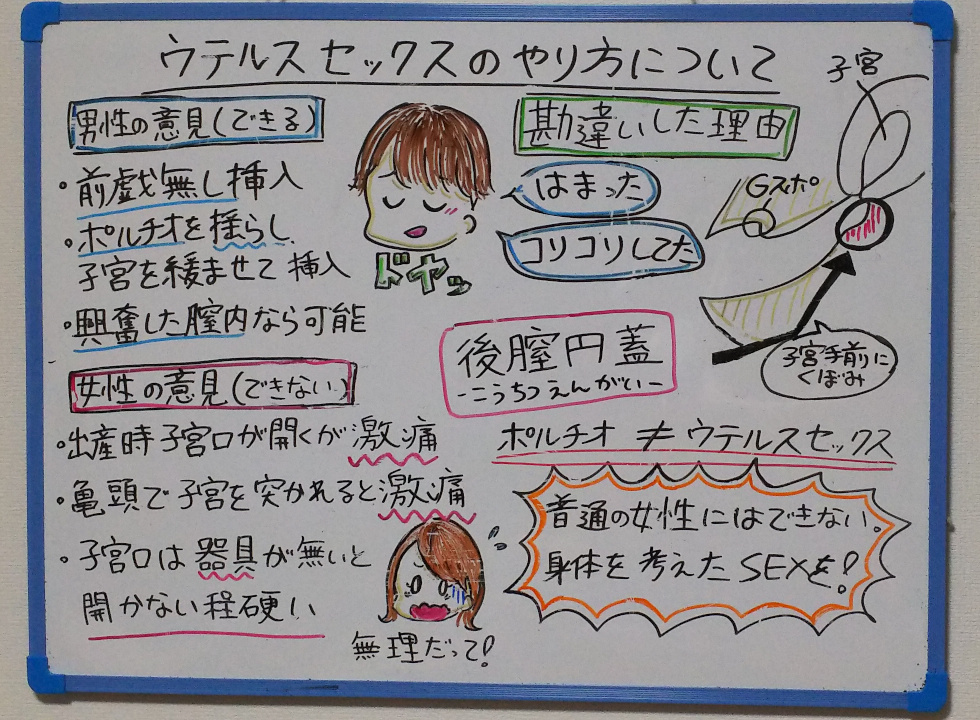 ウテルスセックスのやり方について
男性の意見(できる)
・前戯無し挿入
・ポルチオを揺らし
子宮を緩ませて挿入
・興奮した膣内なら可能
女性の意見(できない)
・出産時子宮口が開くが激痛
・亀頭で子宮を突かれると激痛
・子宮口は器具が無いと
開かない程硬い
無理だって!
ドヤッ
勘違いした理由
はまった
コリコリしてた
子宮
Gスポ
子宮手前に
くぼみ
後膣円蓋
-こうちつえんがい-
ポルチオ≠ウテルスセックス
普通の女性にはできない。
身体を考えたSEXを!